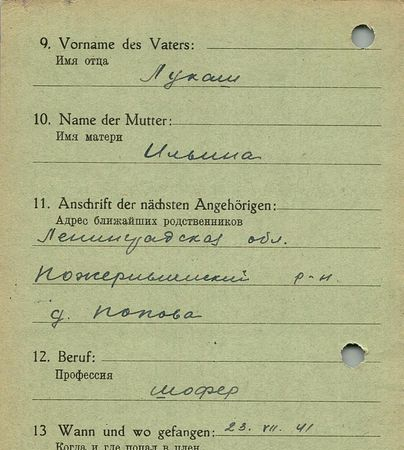 9. Vorname des Vaters:
Имя отца
Лукаш
10. Name der Mutter:
Имя матери
Ильина
11. Anschrift der nächsten Angehörigen:
Адрес ближайших родственников
Ленинградская обл.
р-н.
д. Попова
12. Beruf:
Профессия
шофер
13 Wann und wo gefangen: 23. VII. 41
Когда и где попал в плен